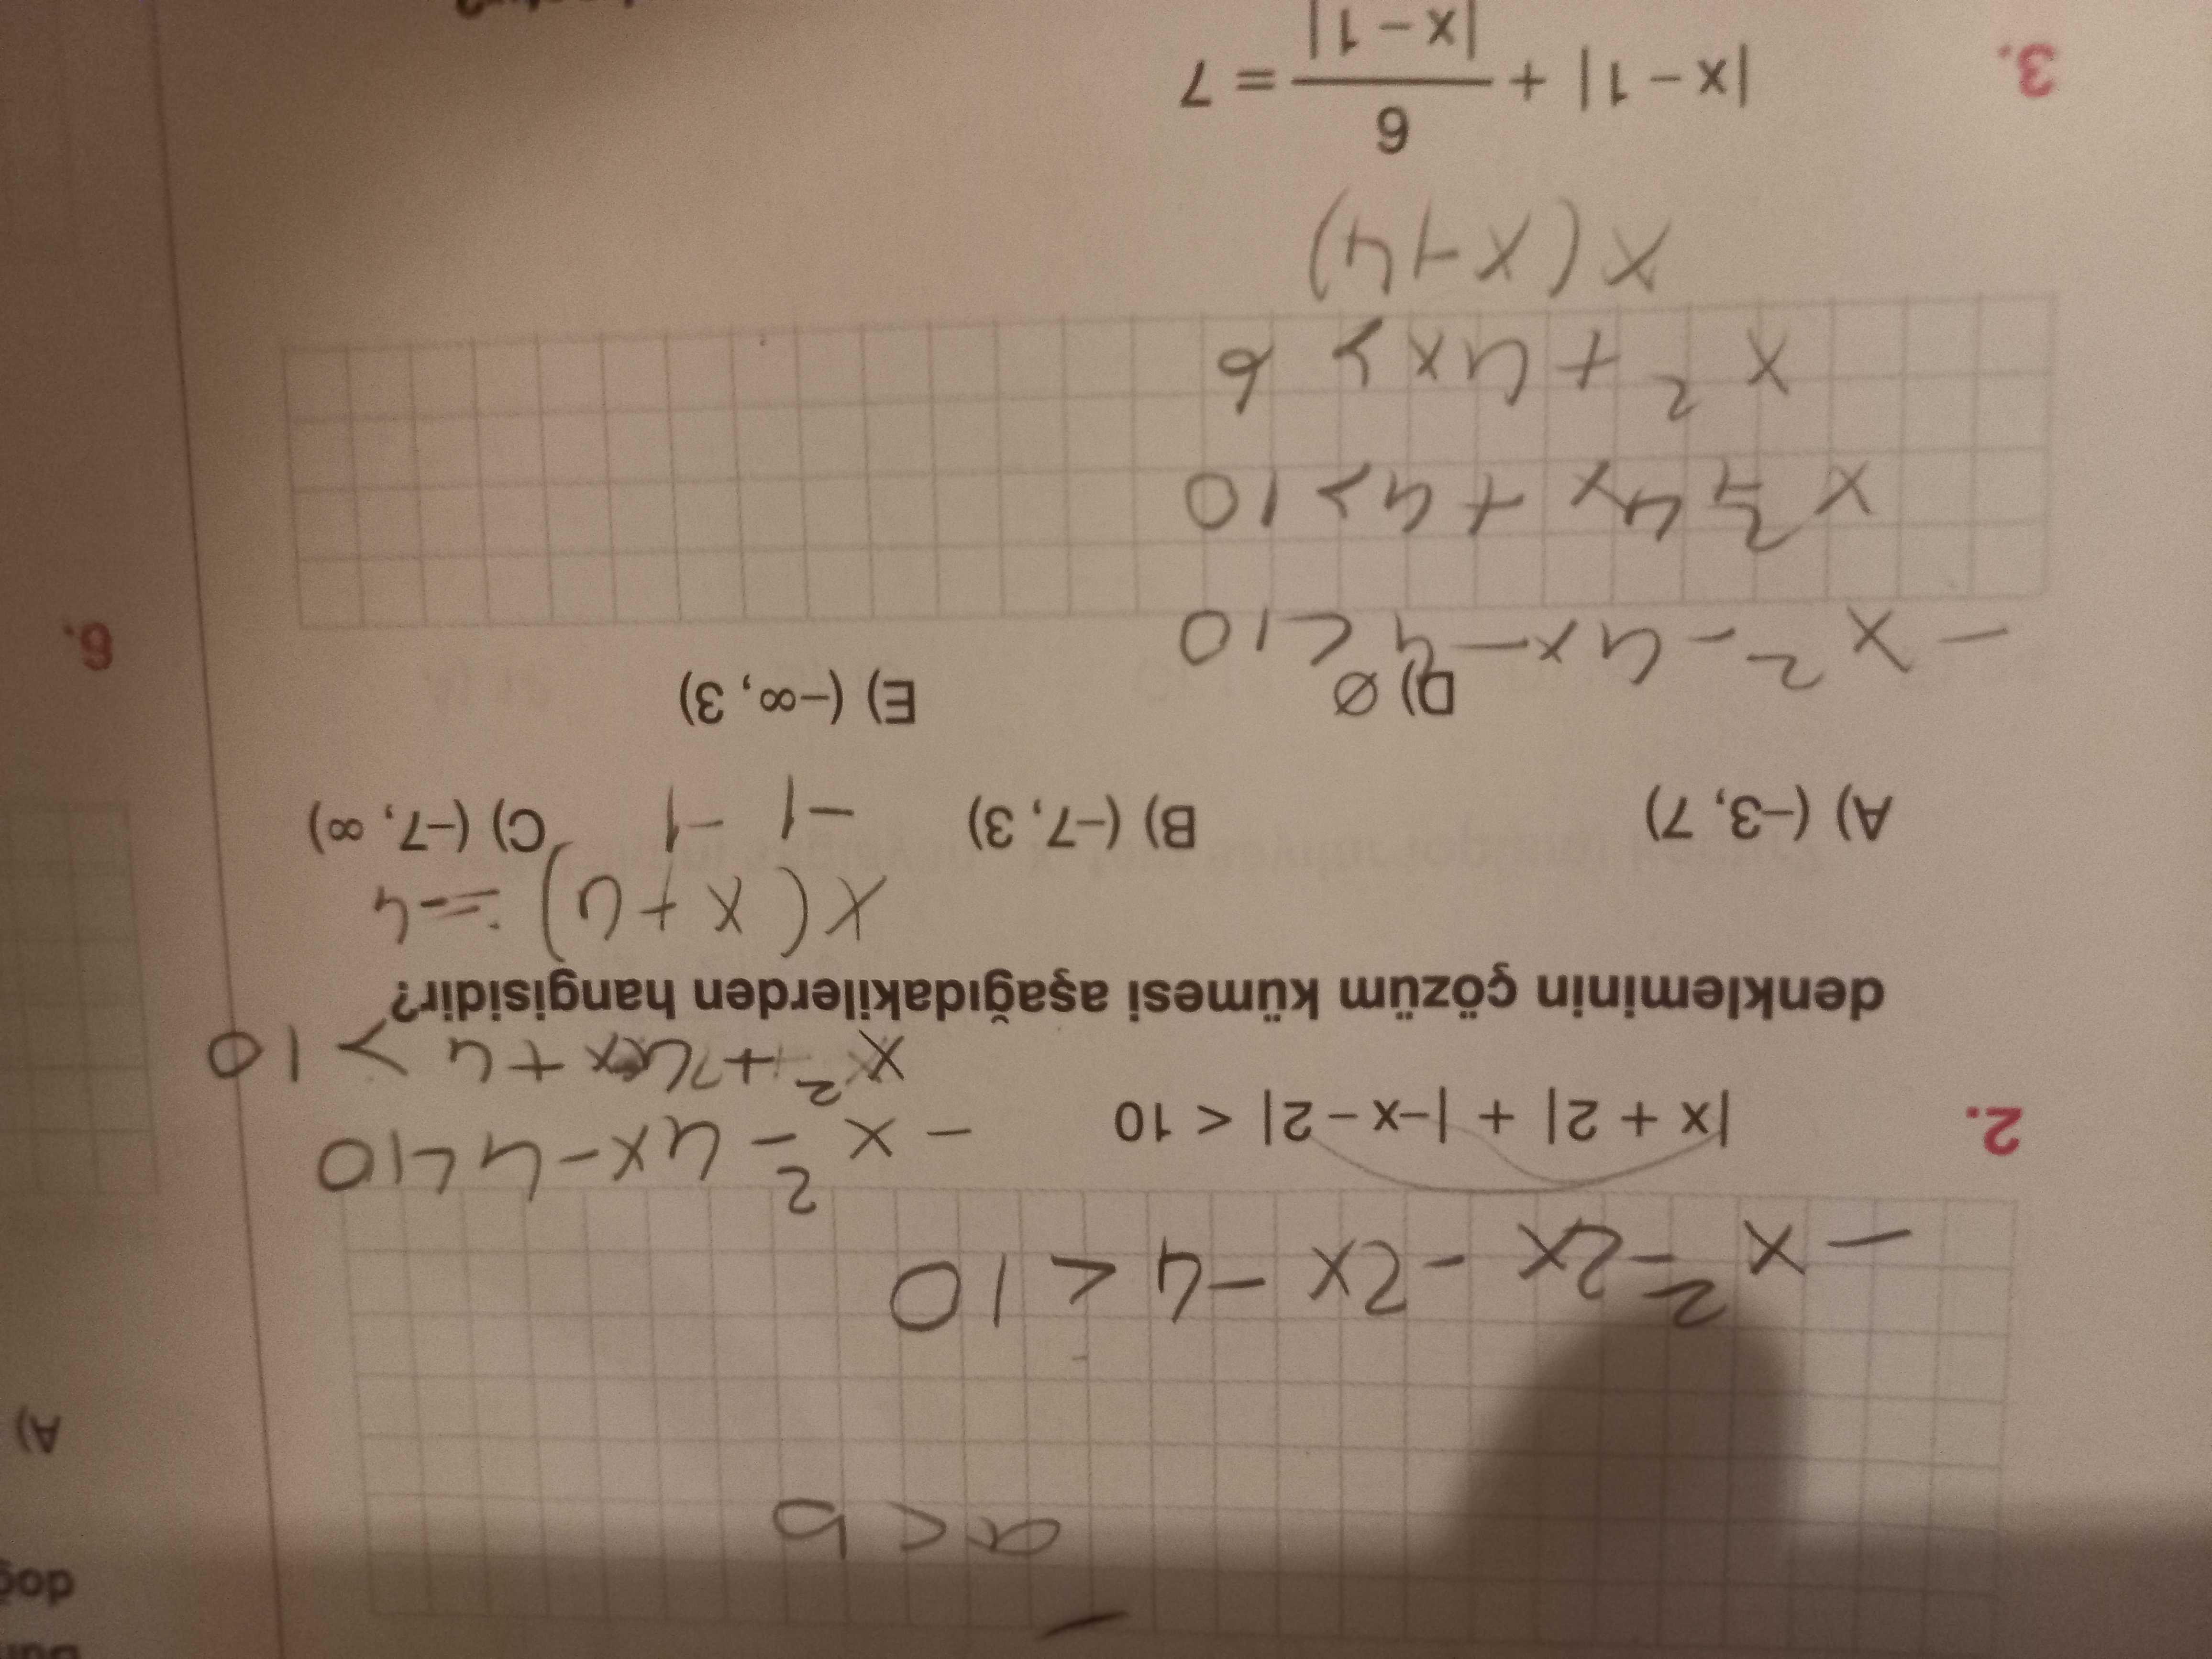 a < b
- x² - 2x - 2x - 4 < 10
2. |x + 2| + |-x - 2| < 10
- x² - 4x - 4 < 10
x² + 4x + 4 > 10
denkleminin çözüm kümesi aşağıdakilerden hangisidir?
x(x+4) = -4
-1 -1
A) (-3, 7) B) (-7, 3) C) (-7, ∞)
D) ∅ E) (-∞, 3)
- x² - 4x - 4 < 10
x² + 4x + 4 > 10
x² + 4x > 6
x(x+4)
3. |x - 1| + 6/|x - 1| = 7
6.
A)
doğ